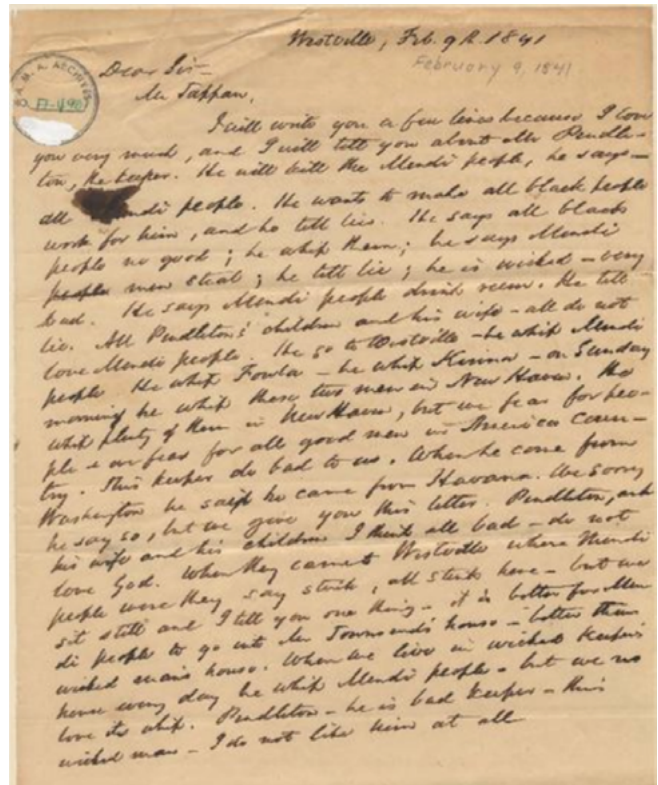 Westville, Feb. 9th 1841
February 9, 1841
A. M. A. ARCHIVES
Dear Sir—
Mr Tappan,
I will write you a few lines because I love
you very much, and I will tell you about Mr Pendle-
ton, the keeper. He will kill the Mendi people, he says—
all Mendi people. He wants to make all black people
work for him, and he tell lie. He says all black
people no good; he whip them; he says Mendi
people men steal; he tell lie; he is wicked—very
bad. He says Mendi people drink rum. He tell
lie. All Pendleton's children and his wife—all do not
love Mendi people. He go to Westville—he whip Mendi
people He whip Fowla—he whip Kinna—on Sunday
morning he whip these two men in New Haven. He
whip plenty of them in New Haven, but we fear for peo-
ple & our fear for all good men in America coun-
try. This keeper do bad to us. When he come from
Washington he said he came from Havana. We sorry
he say so, but we give you this letter. Pendleton, and
his wife and his children I think all bad—do not
love God. When they came to Westville where Mendi
people were they say stink, all stink here—but we
sit still and I tell you one thing—it is better for Men
di people to go into Mr Townsend's house—better than
wicked man's house. When we live in wicked keeper's
house every day he whip Mendi people—but we no
love the whip. Pendleton—he is bad keeper—this
wicked man—I do not like him at all